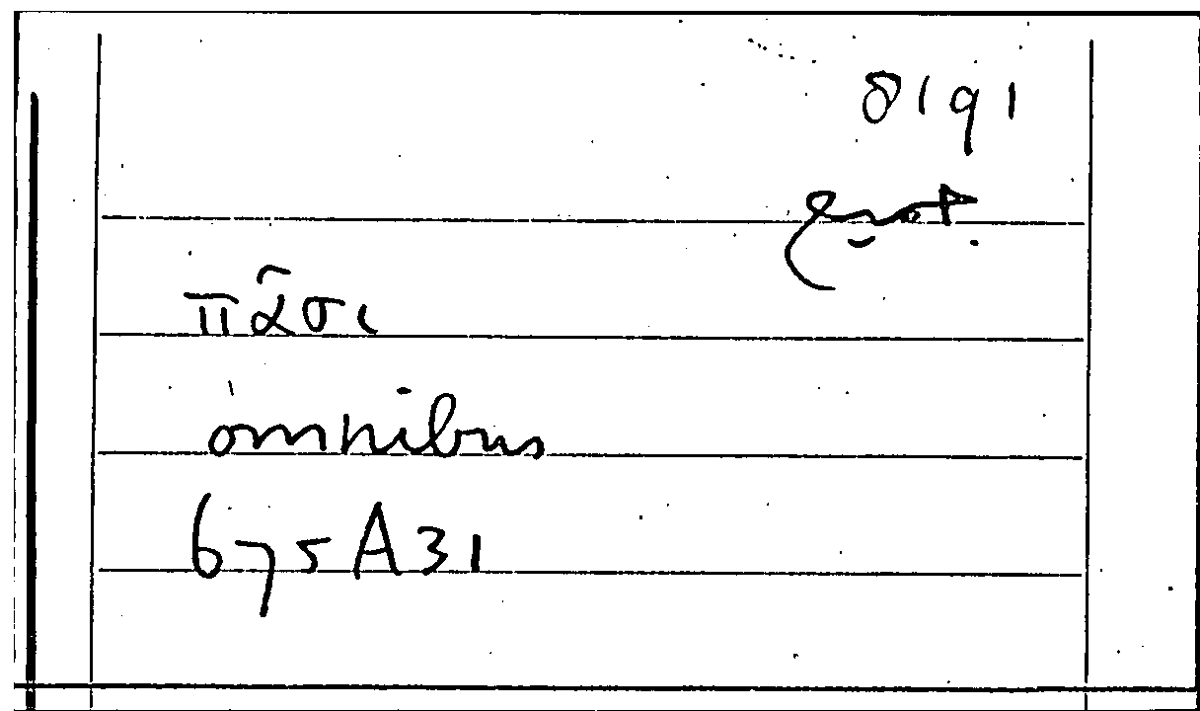 8191
πᾶσι
omnibus
675A31